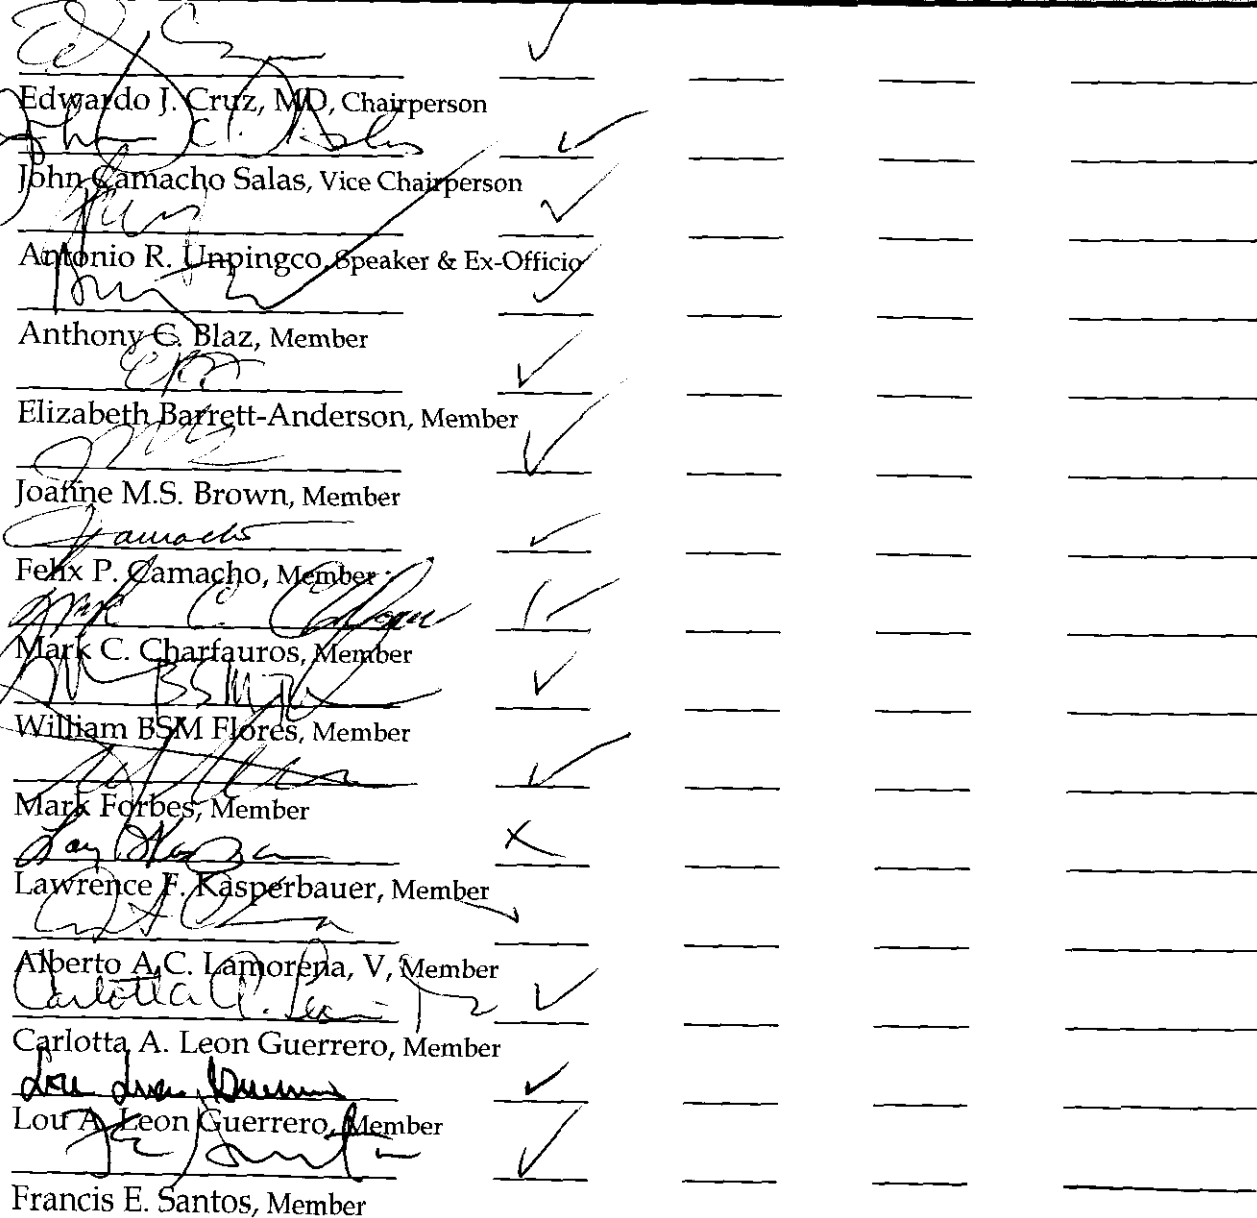 Edwardo J. Cruz, MD, Chairperson
John C. Salas
John Camacho Salas, Vice Chairperson
Antonio R. Unpingco, Speaker & Ex-Officio
Anthony C. Blaz, Member
Elizabeth Barrett-Anderson, Member
Joanne M.S. Brown, Member
Camacho
Felix P. Camacho, Member
Mark C. Charfauros
Mark C. Charfauros, Member
BSM
William BSM Flores, Member
Mark Forbes, Member
Lawrence F. Kasperbauer, Member
Alberto A.C. Lamorena, V, Member
Carlotta A. Leon
Carlotta A. Leon Guerrero, Member
Lou Leon Guerrero
Lou A. Leon Guerrero, Member
Francis E. Santos, Member